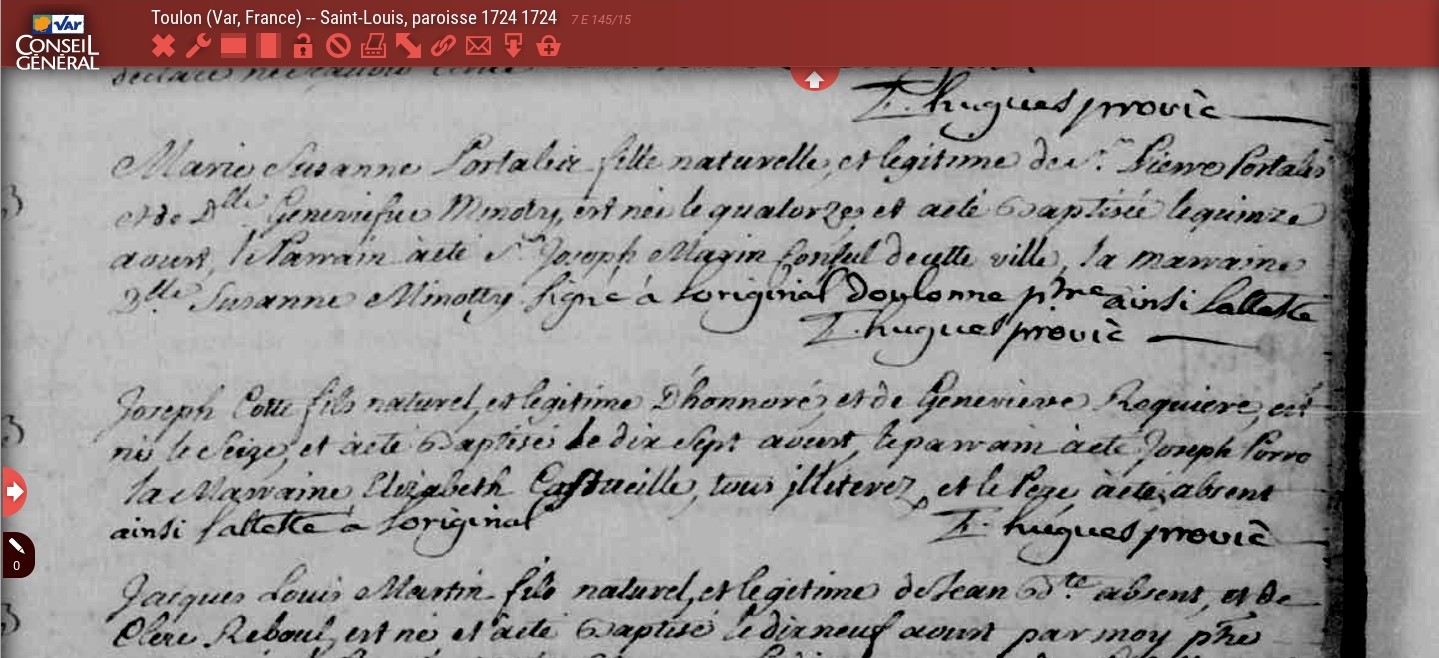 Toulon (Var, France) -- Saint-Louis, paroisse 1724 1724 7 E 145/15
VAR
CONSEIL
GÉNÉRAL
T. hugues provic
Marie Susanne Portalis fille naturelle, et legitime de sr. Pierre Portalis
et de Dlle Geneviefve Minoty, est née le quatorze, et a eté Baptisée le quinze
aoust, le Parrain à eté sr. Joseph Marin Consul de cette ville, la marraine
Dlle Susanne Minotty signé à loriginal Doulonne ptre ainsi latteste
T. hugues provic
Joseph Cotte fils naturel, et legitime Dhonnoré, et de Genevieve Roquiere, est
né le seize, et à eté Baptisé le dix sept aoust, le parrain à eté Joseph Porro
la Marraine Elizabeth tous illiterez, et le Pere à eté absent
ainsi latteste a loriginal T. hugues provic
Jacques Louis Martin fils naturel, et legitime de Jean Bte. absent, et de
Clere Reboul, est né et à eté Baptisé le dix neuf aoust par moy ptre
0